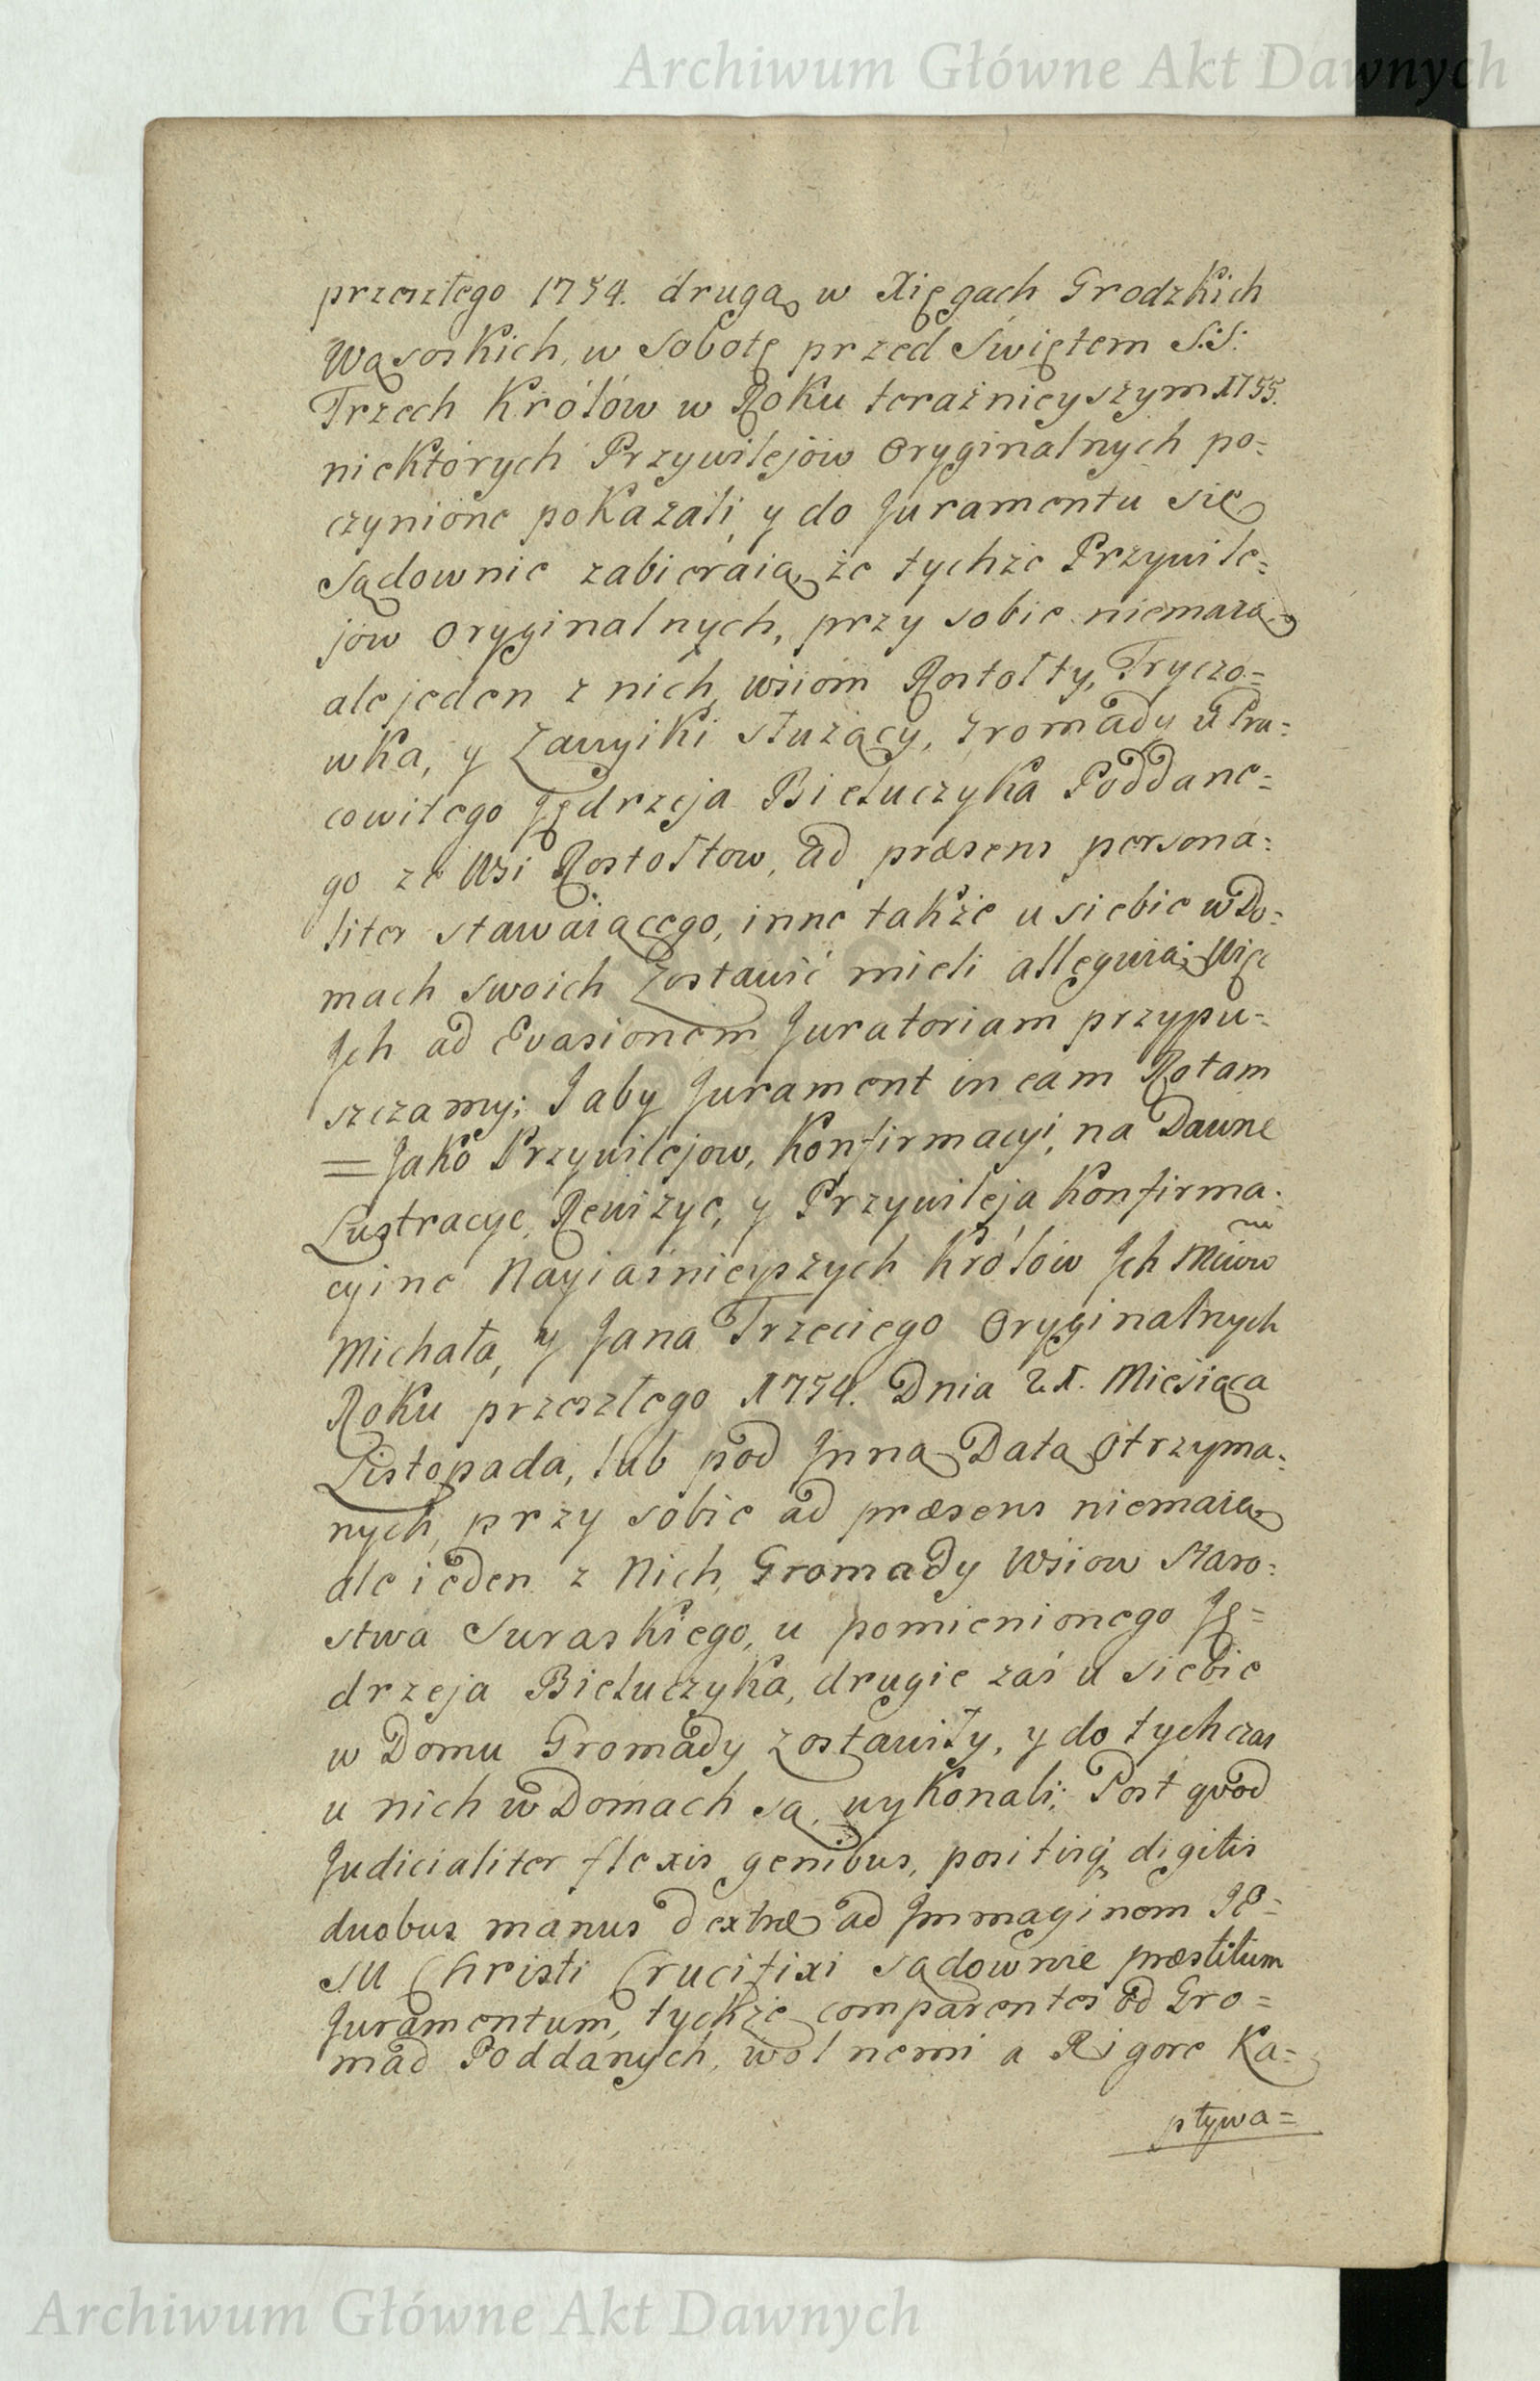 Archiwum Główne Akt Dawnych
przeszłego 1754. drugą w Xięgach Grodzkich
Wąsoskich, w Sobotę przed Swiętem S.S.
Trzech Królów w Roku teraźnieyszym 1755.
niektórych Przywilejów Oryginalnych po=
czynione pokazali, y do Juramentu się
Sądownie zabieraią, że tychże Przywile=
jow Oryginalnych, przy sobie niemaią
ale jeden z nich, wsiom Rostołty, Tryczo=
wka, y Zawyiki służący, Gromady u Pra=
cowitego Jędrzeja Bieluczyka Poddane=
go ze Wsi Rostołtow, ad præsens persona=
liter stawaiącego, inne także u siebie w Do=
mach swoich zostawić mieli alleguią; Więc
Jch ad Evasionem Juratoriam przypu=
szczamy; J aby Jurament in eam Rotam
= Jako Przywilejow, Konfirmacyi, na Dawne
Lustracye, Rewizye, y Przywileja Konfirma=
cyine Nayiaśnieyszych Królów Jch Mciow
Michała, y Jana Trzeciego Oryginalnych
Roku przeszłego 1754. Dnia 21. Miesiąca
Listopada, lub pod Jnną Datą otrzyma=
nych, przy sobie ad præsens niemaią
ale ieden z Nich, Gromady Wsiow Staro=
stwa Suraskiego, u pomienionego Ję=
drzeja Bieluczyka, drugie zaś u siebie
w Domu Gromady zostawiły, y do tychczas
u nich w Domach są, wykonali; Post qvod
Judicialiter flexis genibus, positisq; digitis
duobus manus dextræ ad Jmmaginem JE=
SU Christi Crucifixi sądownie præstitum
Juramentum, tychże comparentes od Gro=
mad Poddanych, wolnemi a Rigore Ka=
ptywa=
Archiwum Główne Akt Dawnych